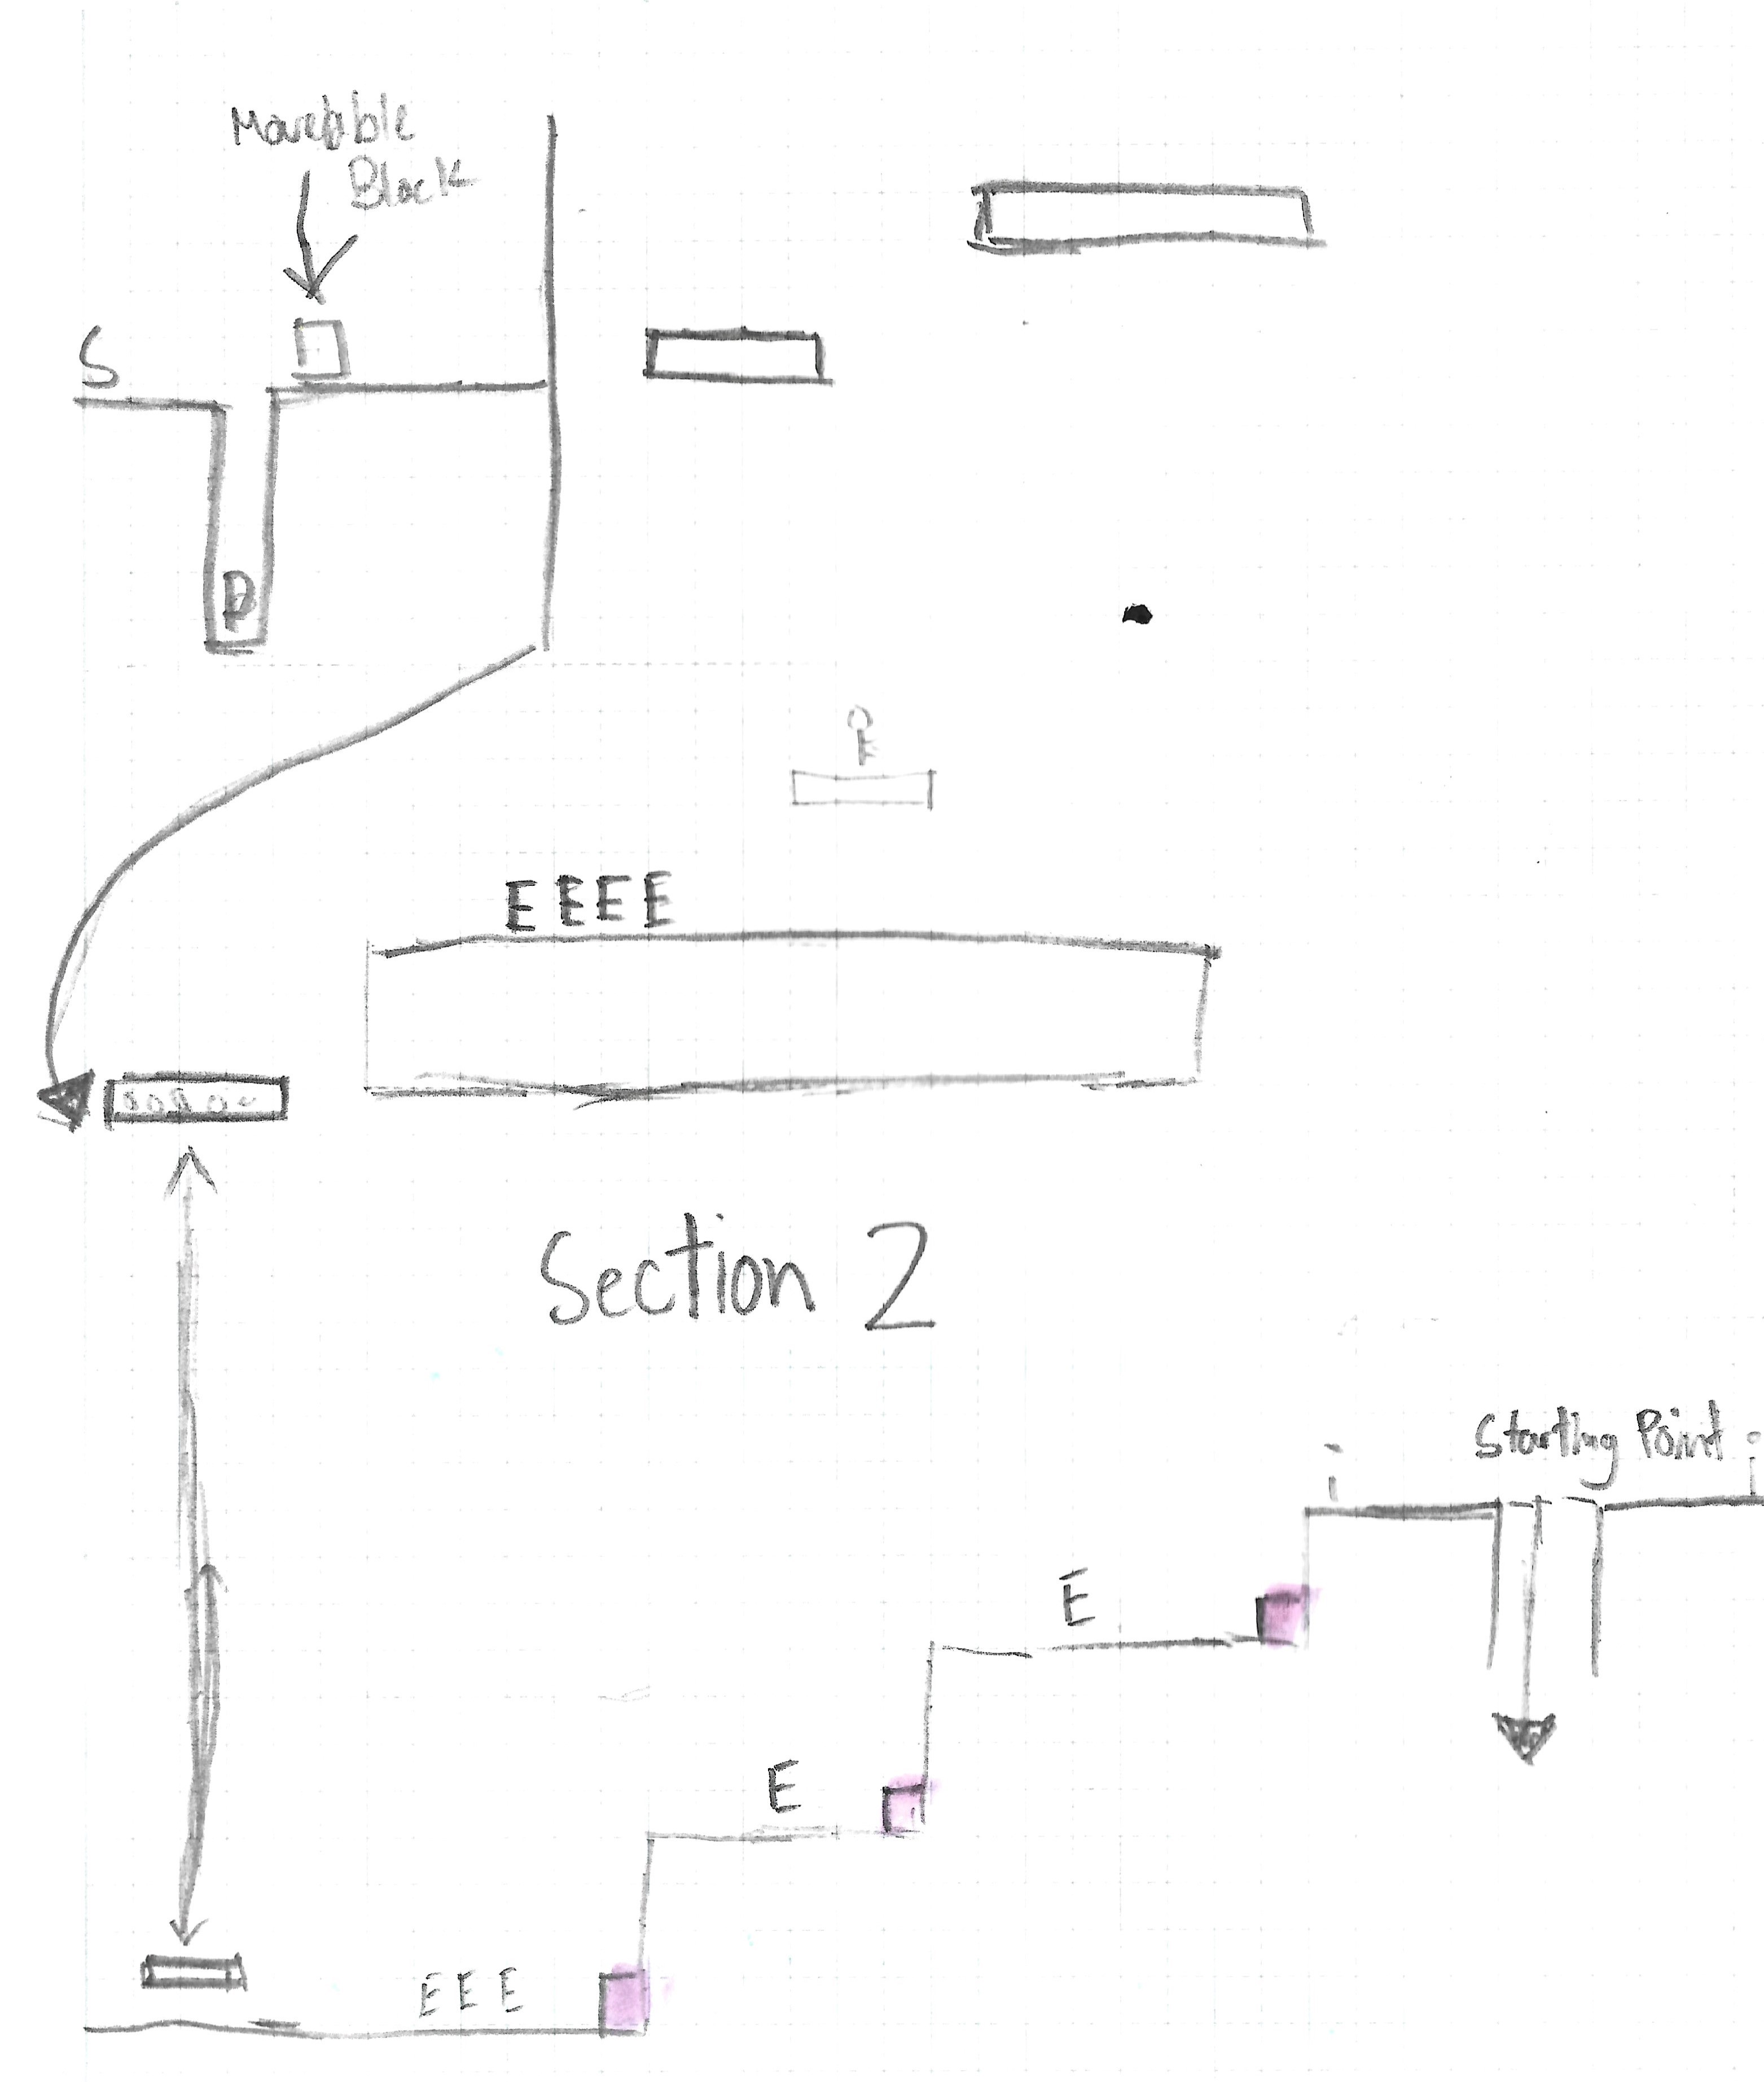 Moveable
Block
S
P
E E E E
Section 2
Starting Point
E
E
E E E